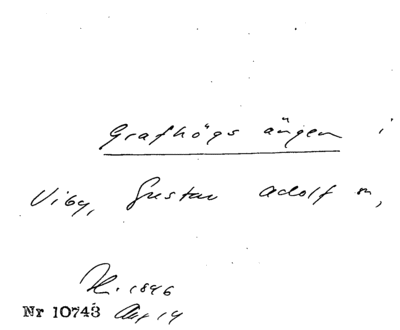 Grafhögs ängen i
Viby, Gustav Adolf sn,
1846
Nr 10743 14